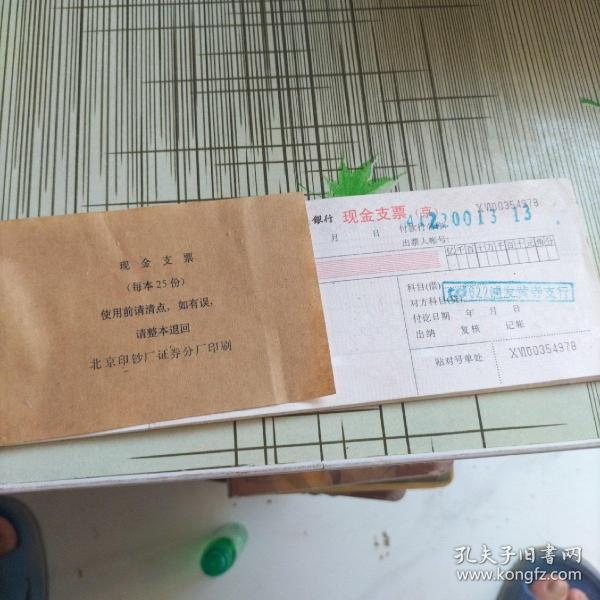 现金支票
（每本25份）
使用前请清点，如有误，
请整本退回
北京印钞厂证券分厂印刷
银行 现金支票（京） XVI00354978
月 日
出票人帐号：
亿千百十万千百十元角分
科目(借)
对方科目
付讫日期 年 月 日
出纳 复核 记账
贴对号单处 XVI00354978
孔夫子旧书网
www.kongfz.com